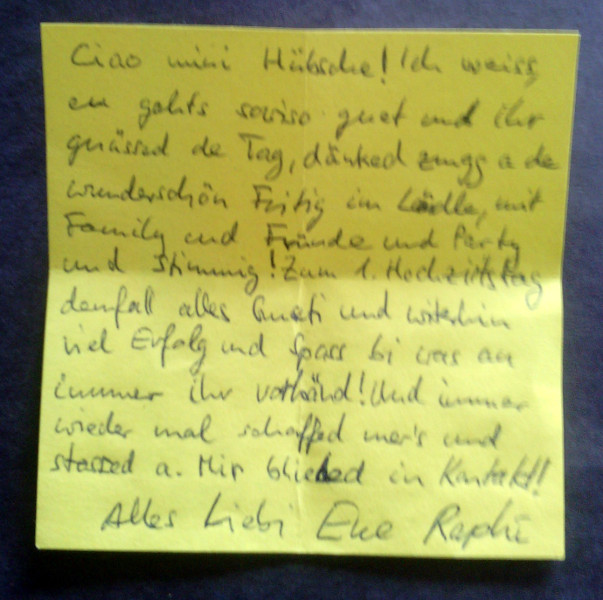 Ciao mini Hübsche! Ich weiss,
eu gahts sowiso guet und ihr
gnüssed de Tag, dänked zrugg a de
wunderschön Fritig im Lädle, mit
Family und Fründe und Party
und Stimmig! Zum 1. Hochzitstag
demfall alles Gueti und witerhin
viel Erfolg und Spass bi was au
immer ihr vorhänd! Und immer
wieder mal schaffed mer's und
stossed a. Mir bliebed in Kontakt!
Alles Liebi Eue Raphi